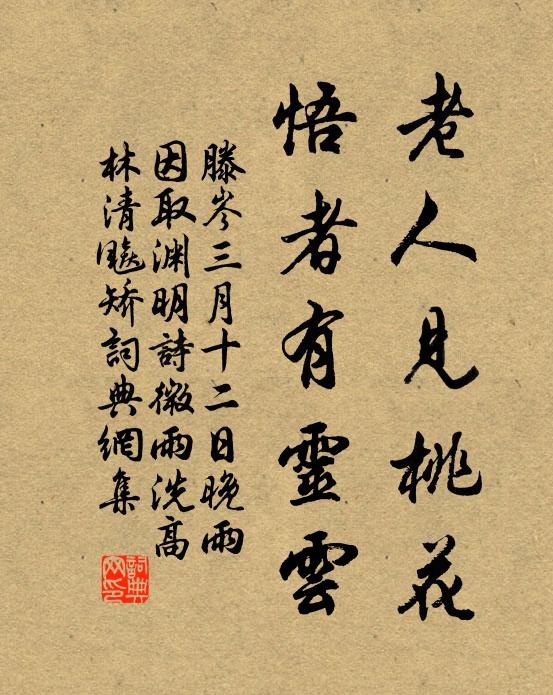 老人見桃花
悟者有靈雲
滕岑三月十二日晚雨
因取淵明詩微雨洗高
林清飈矯詞典網集
詞典
网印